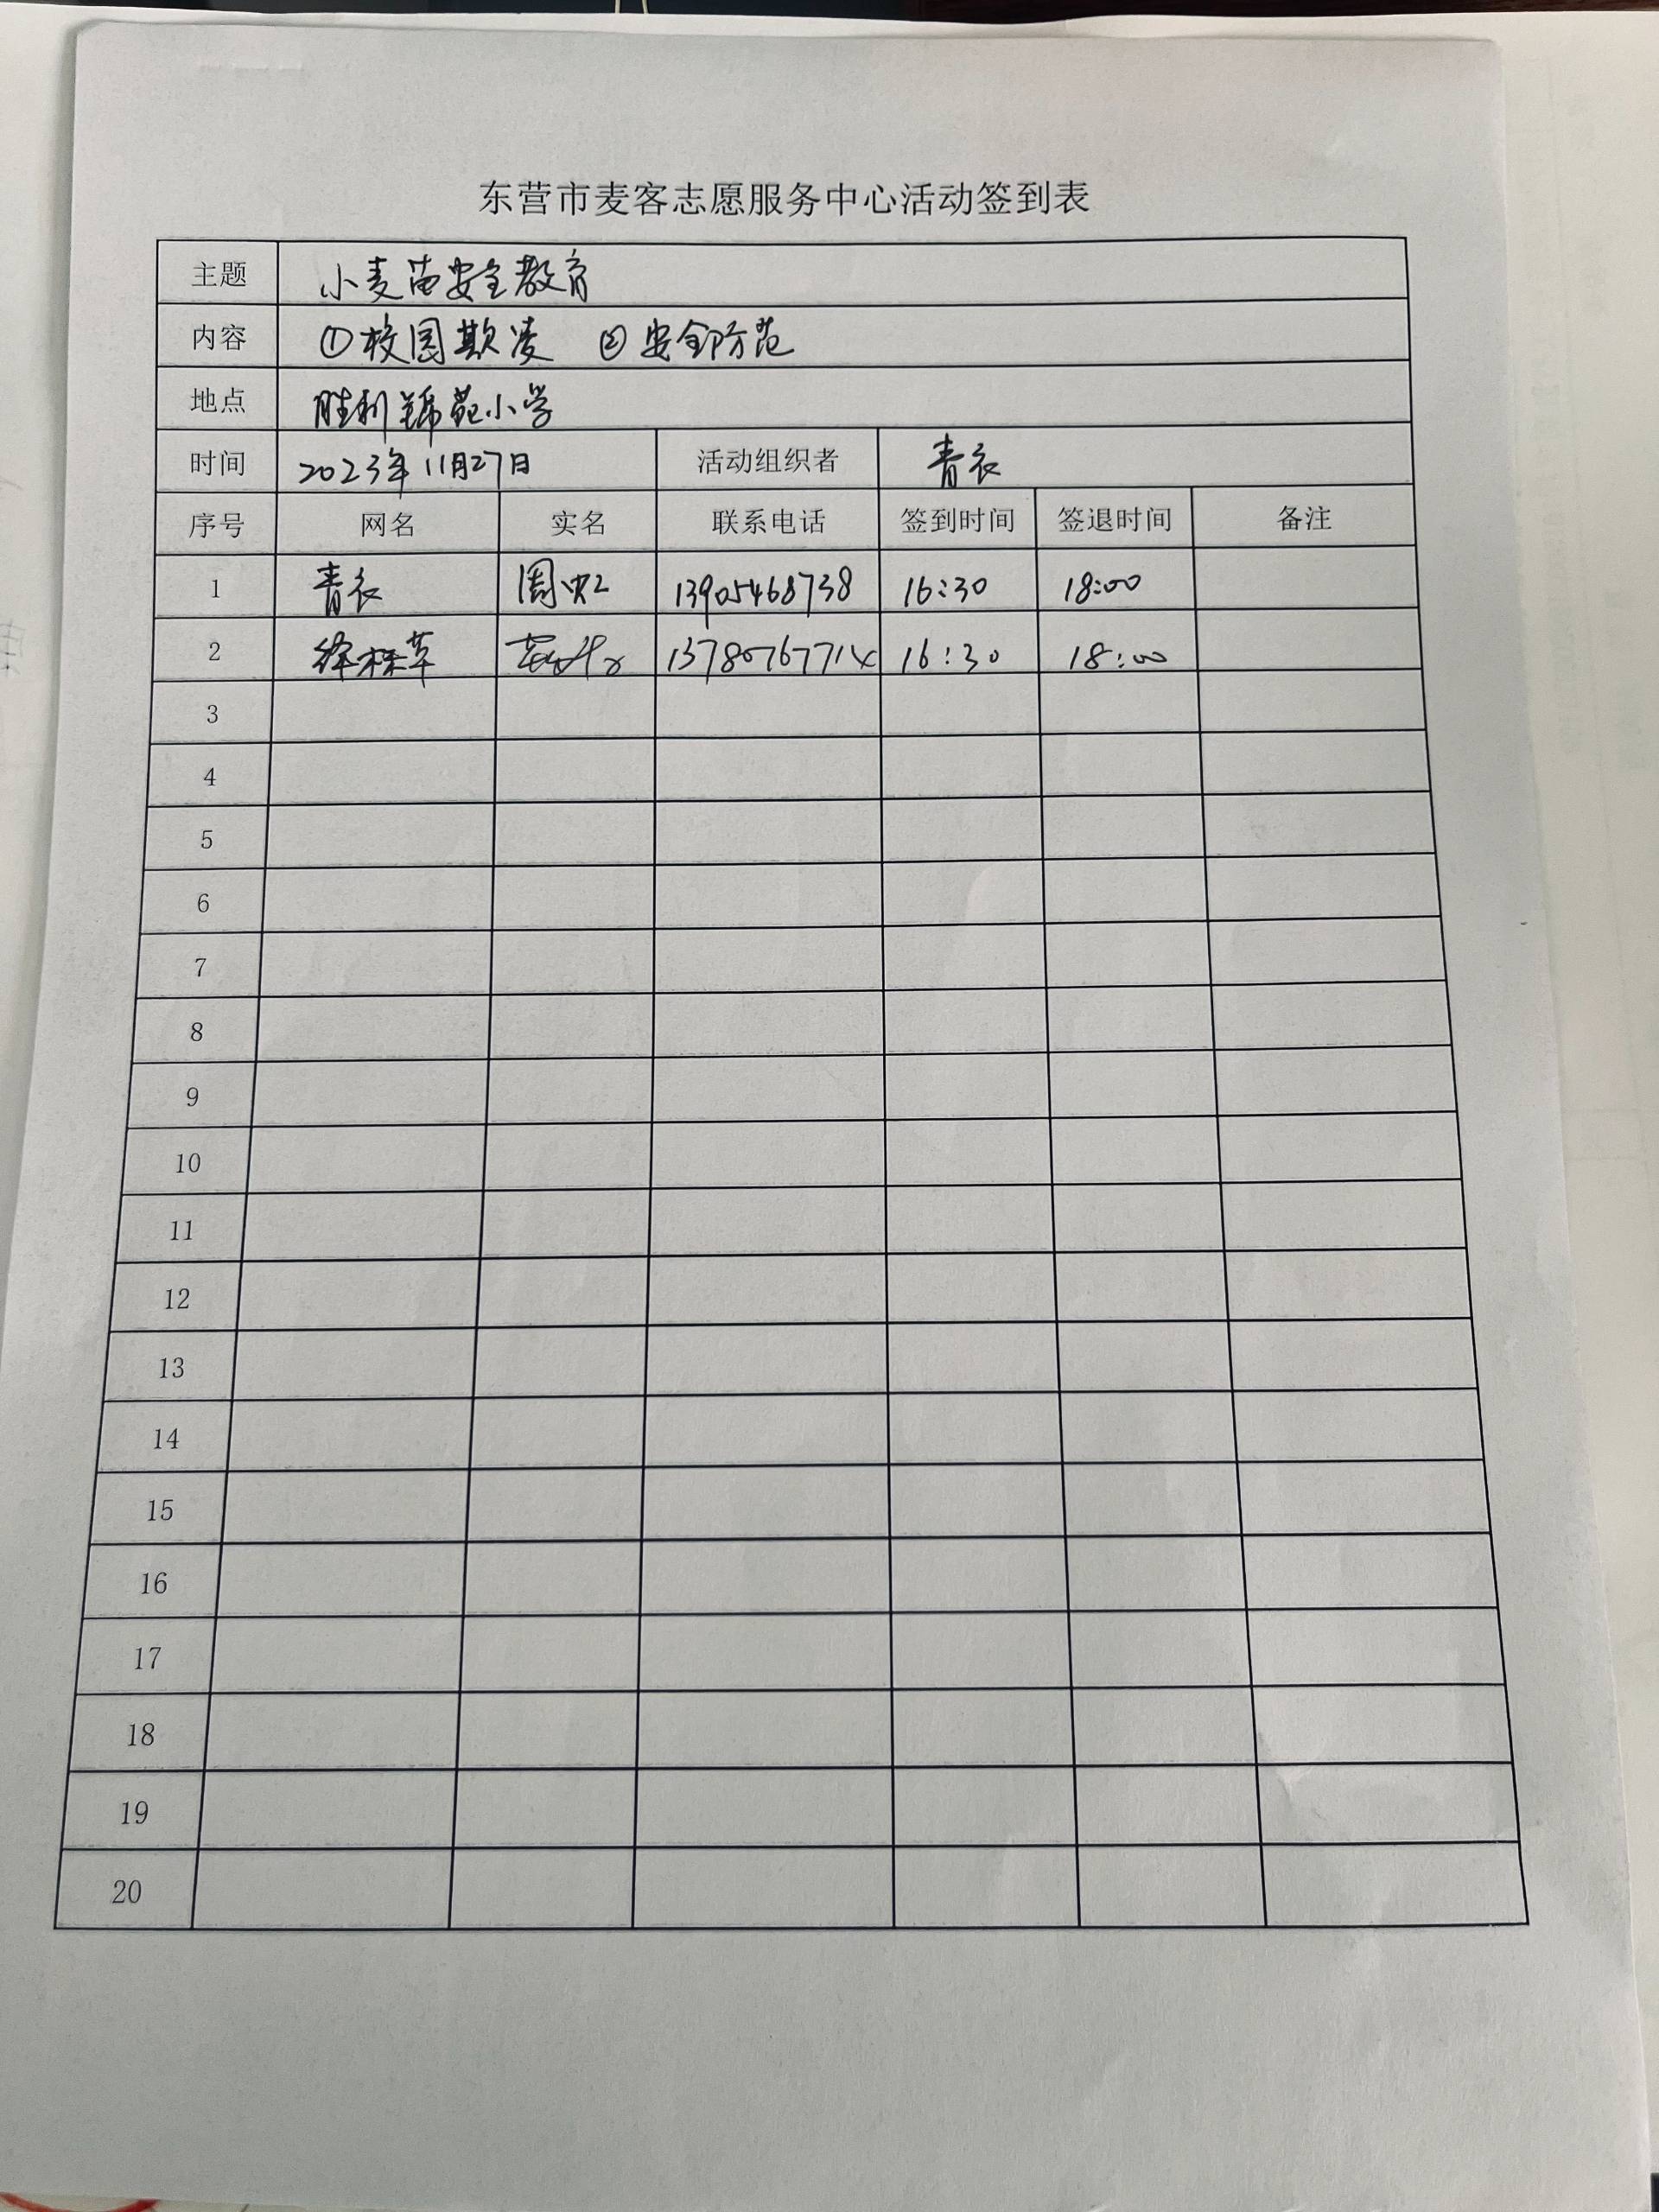 东营市麦客志愿服务中心活动签到表
主题 小麦苗安全教育
内容 ①校园欺凌 ②安全防范
地点 胜利锦苑小学
时间 2023年11月27日 活动组织者 青衣
序号 网名 实名 联系电话 签到时间 签退时间 备注
1 青衣 周 13905468738 16:30 18:00
2 13780767714 16:30 18:00
3
4
5
6
7
8
9
10
11
12
13
14
15
16
17
18
19
20